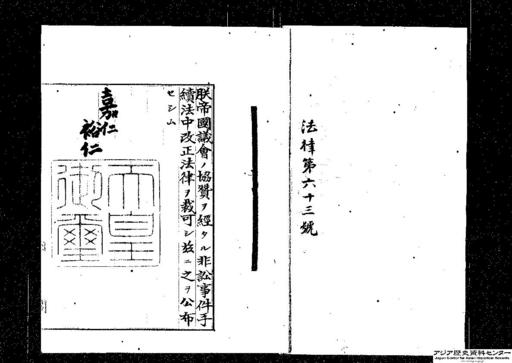 法律第六十三號
朕帝國議會ノ協贊ヲ經タル非訟事件手
續法中改正法律ヲ裁可シ茲ニ之ヲ公布
セシム
嘉仁
裕仁
天皇
御璽
アジア歴史資料センター
Japan Center for Asian Historical Records